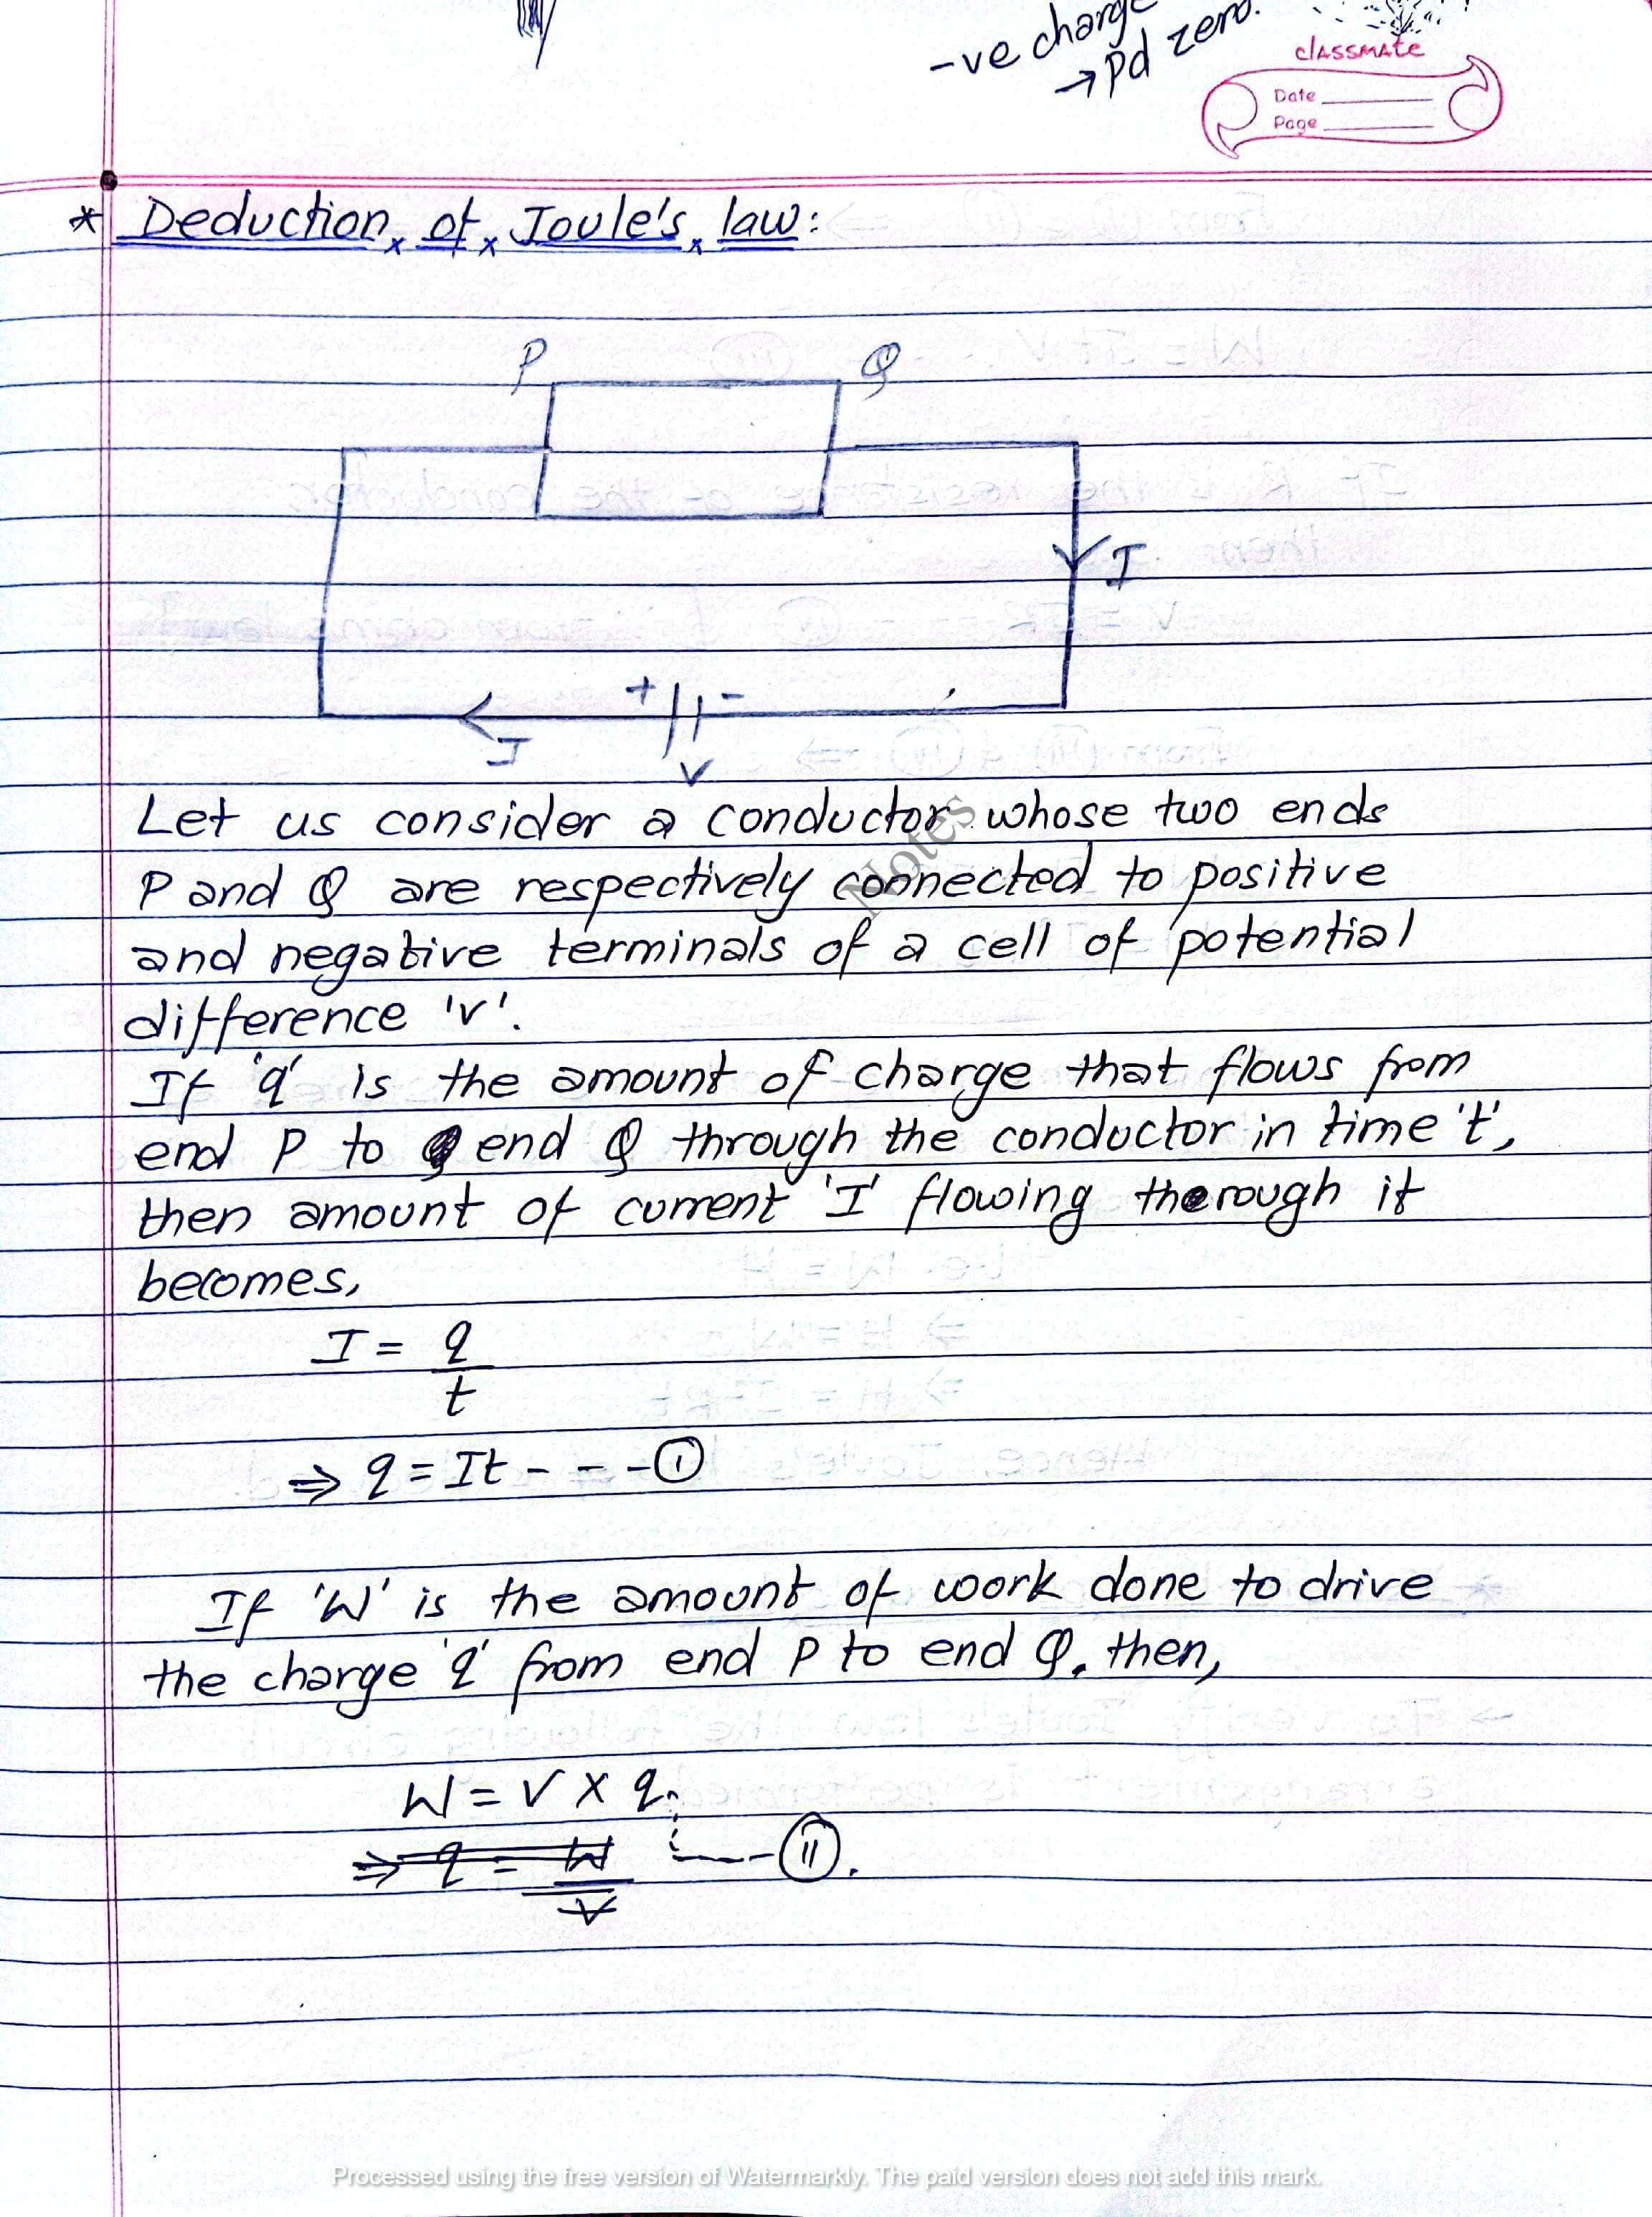 -ve charge
→ Pd zero.
classmate
Date
Page
* Deduction of Joule's law:
P Q
I
+ -
I
V
Let us consider a conductor whose two ends
P and Q are respectively connected to positive
and negative terminals of a cell of potential
difference 'v'.
If 'q' is the amount of charge that flows from
end P to end Q through the conductor in time 't',
then amount of current 'I' flowing therough it
becomes,
I = q
t
⇒ q = It - - - (i)
If 'W' is the amount of work done to drive
the charge 'q' from end P to end Q. then,
W = V x q
⇒ q = W ---(ii).
V
Notes
Processed using the free version of Watermarkly. The paid version does not add this mark.